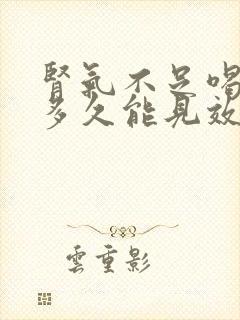 腎氣不足喝
多久能見效
雲重影